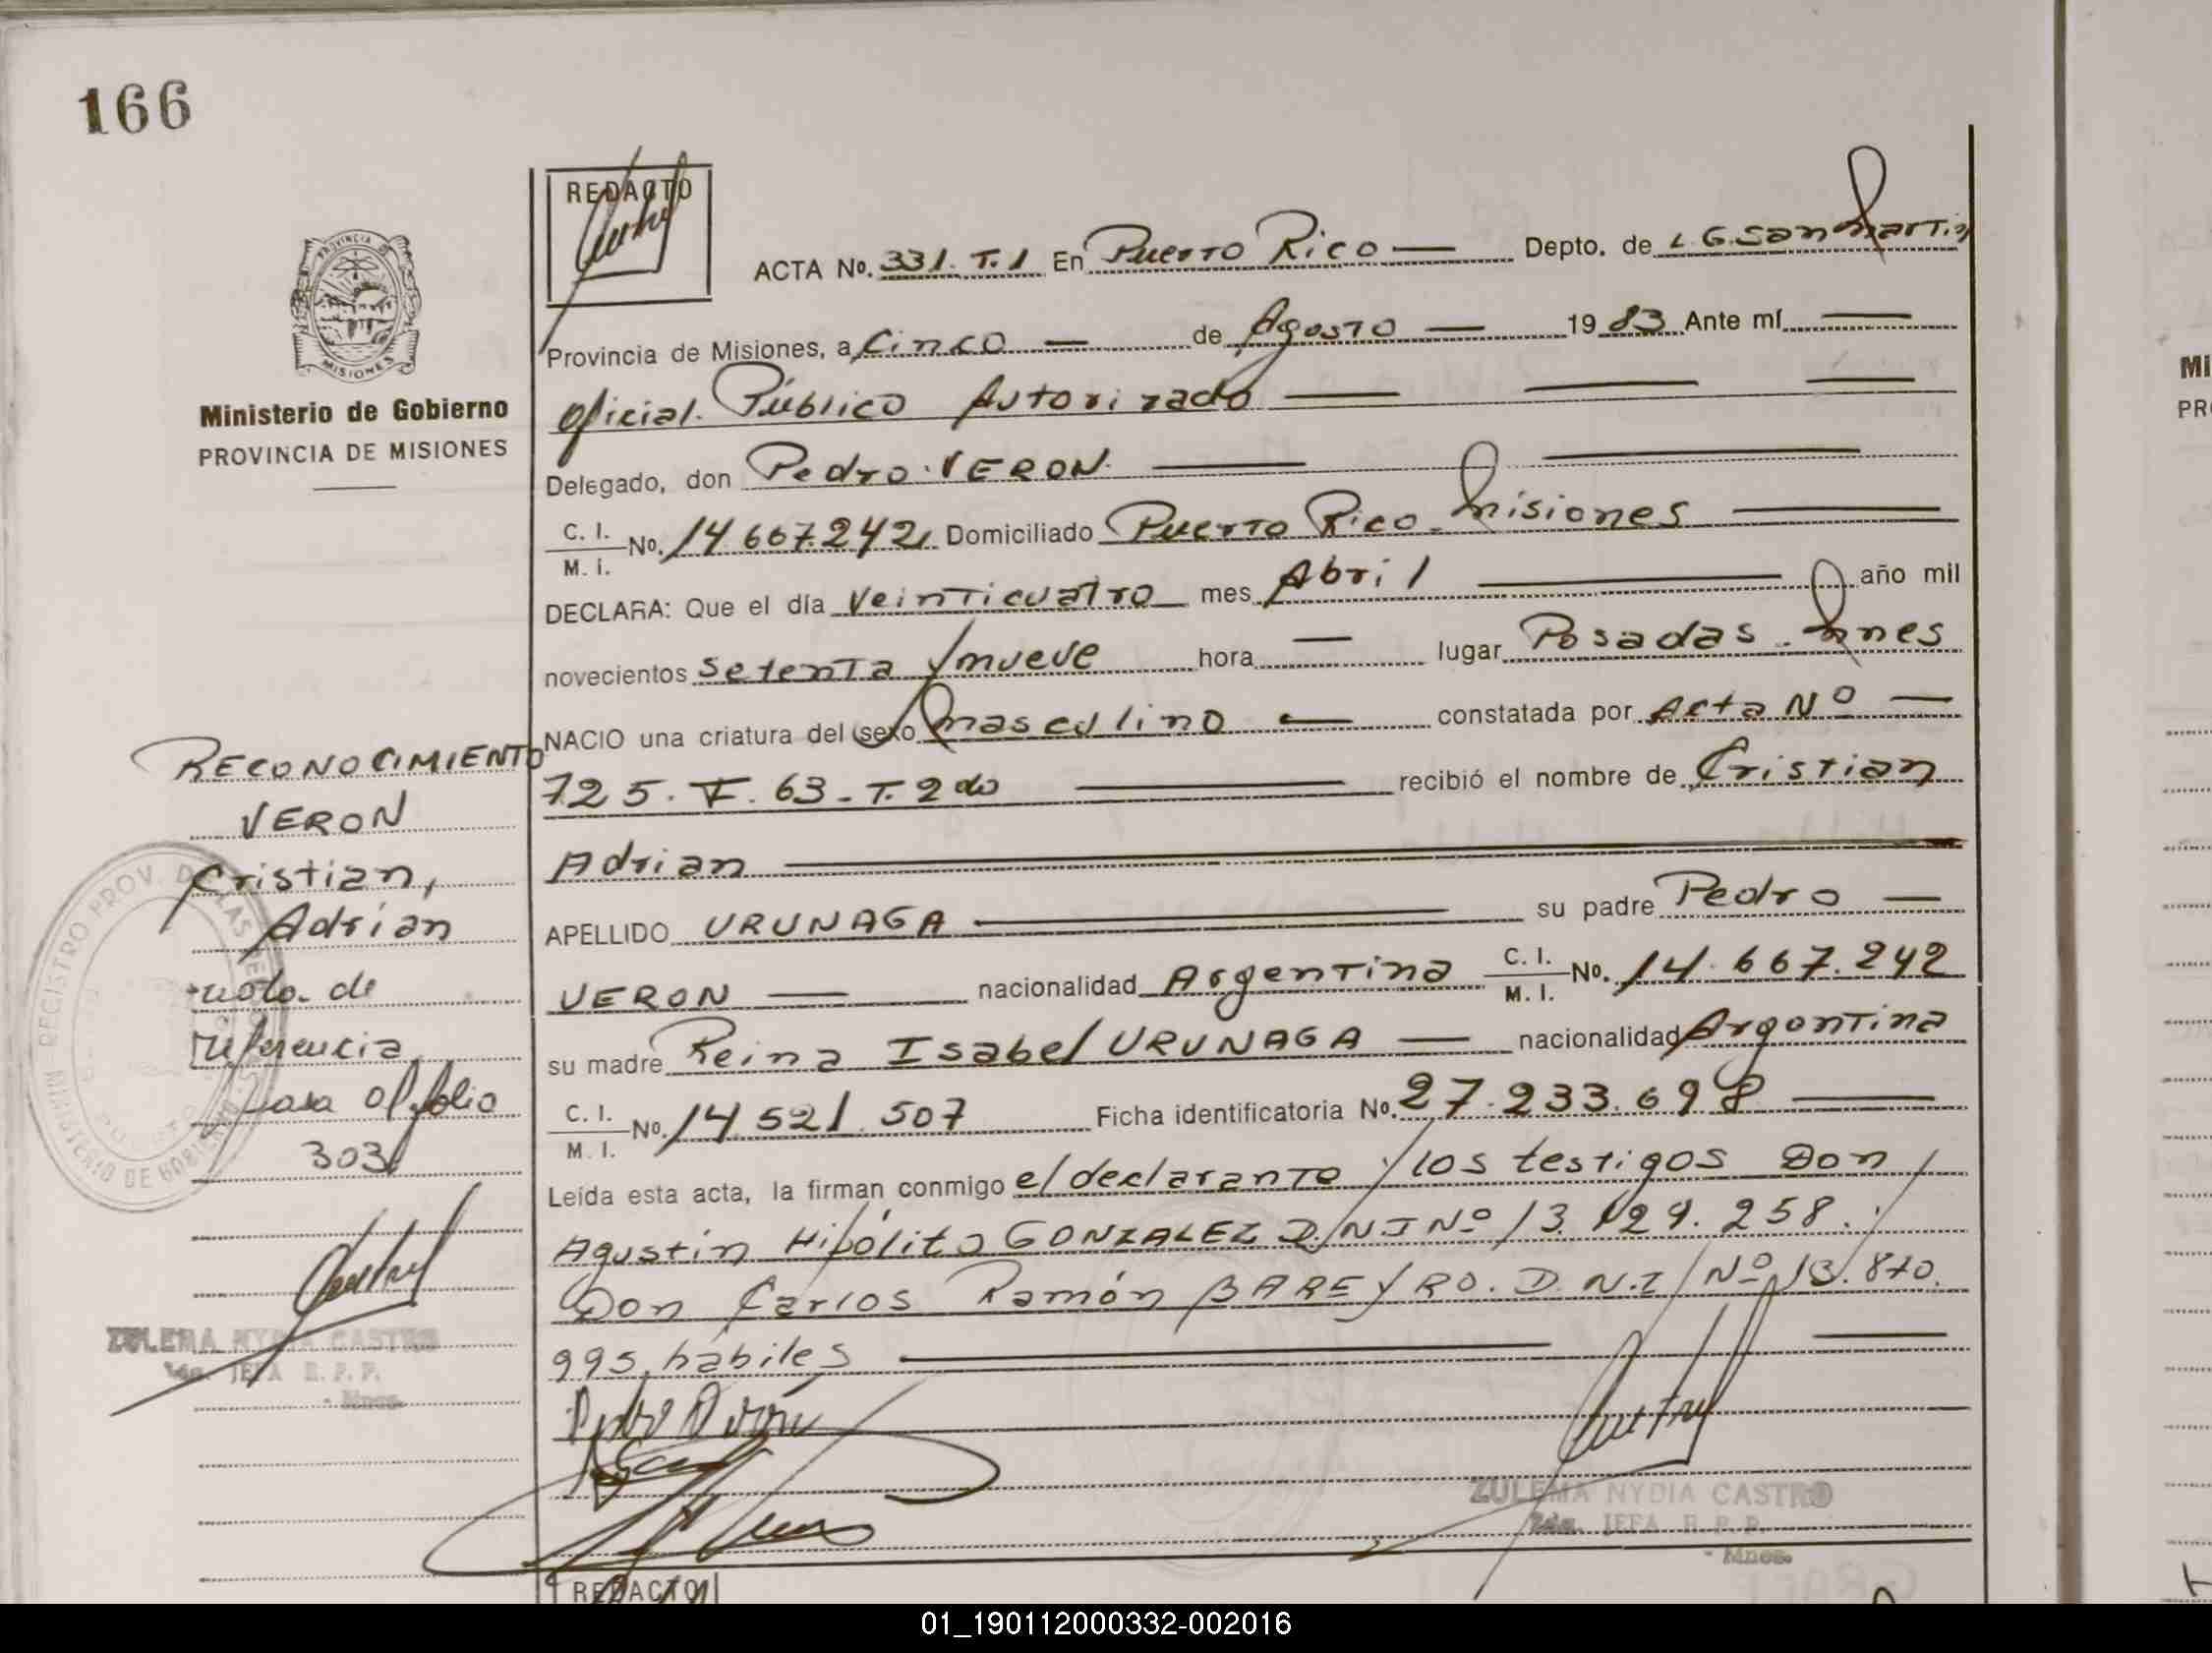 166
REDACTO
ACTA No. 331. T. 1 En Puerto Rico Depto. de L. G. San Martin
Provincia de Misiones, a Cinco de Agosto 1983 Ante mí
Oficial Público Autorizado
Delegado, don Pedro VERON.
C. I. M. I. No. 14.667.242 Domiciliado Puerto Rico. Misiones
DECLARA: Que el día Veinticuatro mes Abril año mil
novecientos setenta y nueve hora lugar Posadas. Mnes
NACIO una criatura del sexo masculino constatada por Acta Nº
725. F. 63. T. 2do recibió el nombre de Cristian
Adrian
APELLIDO URUNAGA su padre Pedro
VERON nacionalidad Argentina C. I. M. I. No. 14.667.242
su madre Reina Isabel URUNAGA nacionalidad Argentina
C. I. M. I. No. 14.521.507 Ficha identificatoria No. 27.233.698
Leída esta acta, la firman conmigo el declarante y los testigos Don
Agustín Hipólito GONZALEZ D.N.I Nº 13. 258. y
Don Carlos Ramón BAREYRO. D.N.I Nº 13.870.
995, hábiles
Pedro Verón
ZULEMA NYDIA CASTRO
JEFA R. P. P.
- Mnes.
REDACTO
PROVINCIA DE MISIONES
Ministerio de Gobierno
PROVINCIA DE MISIONES
RECONOCIMIENTO
VERON
Cristian,
Adrián
nota de
referencia
pasa al folio
303
ZULEMA NYDIA CASTRO
JEFA R. P. P.
- Mnes.
MI
PR
01_190112000332-002016